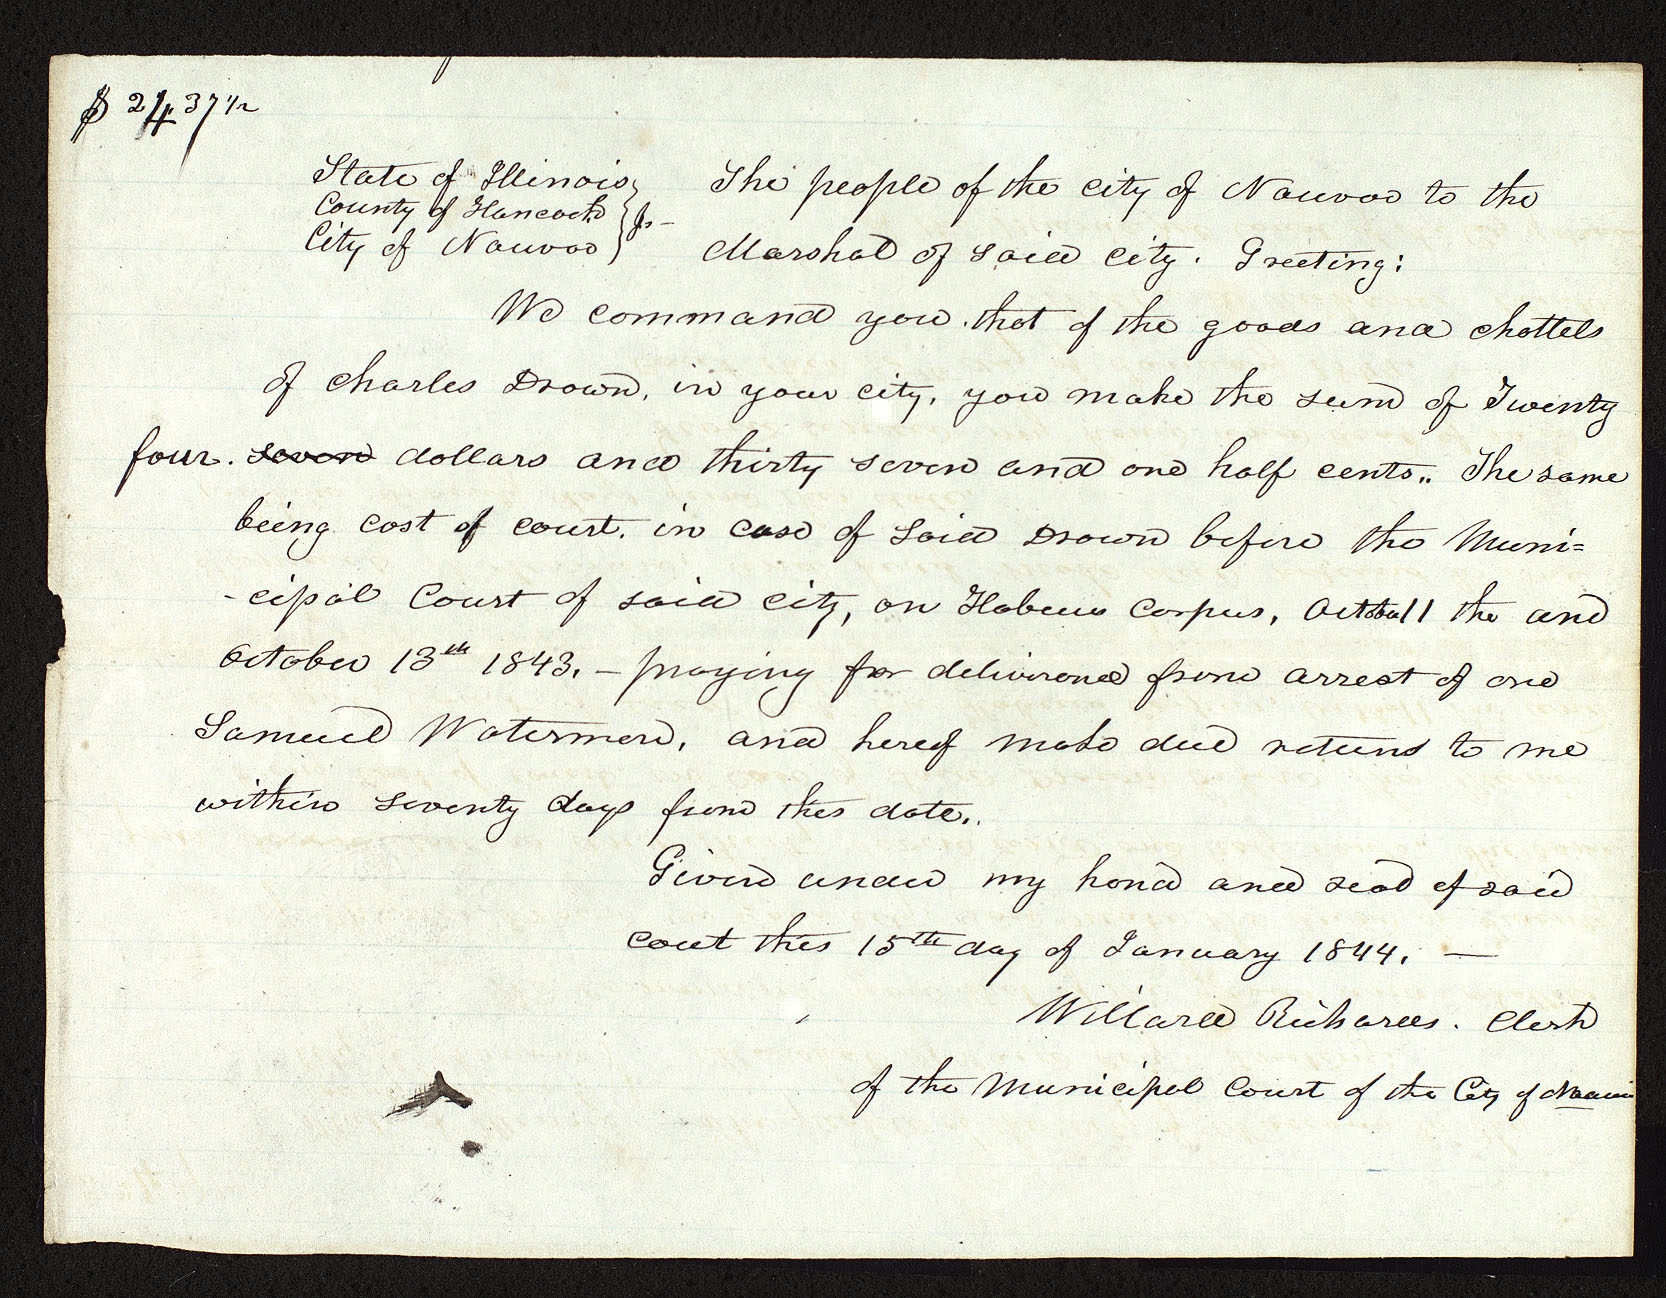 $ 24 37 1/2
State of Illinois
County of Hancock } ss—
City of Nauvoo
The people of the city of Nauvoo to the
Marshal of said city. Greeting:
We command you that of the goods and chattels
of Charles Drown, in your city, you make the sum of Twenty
four. seven dollars and thirty seven and one half cents.. The same
being cost of court. in case of said Drown before the Muni=
-cipal Court of said city, on Habeus Corpus, October 11 the and
October 13th 1843. – praying for deliverance from arrest of one
Samuel Waterman, and hereof make due return to me
within seventy days from this date..
Given under my hand and seal of said
court this 15th day of January 1844. —
Willard Richards. Clerk
of the Municipal Court of the City of Nauvoo